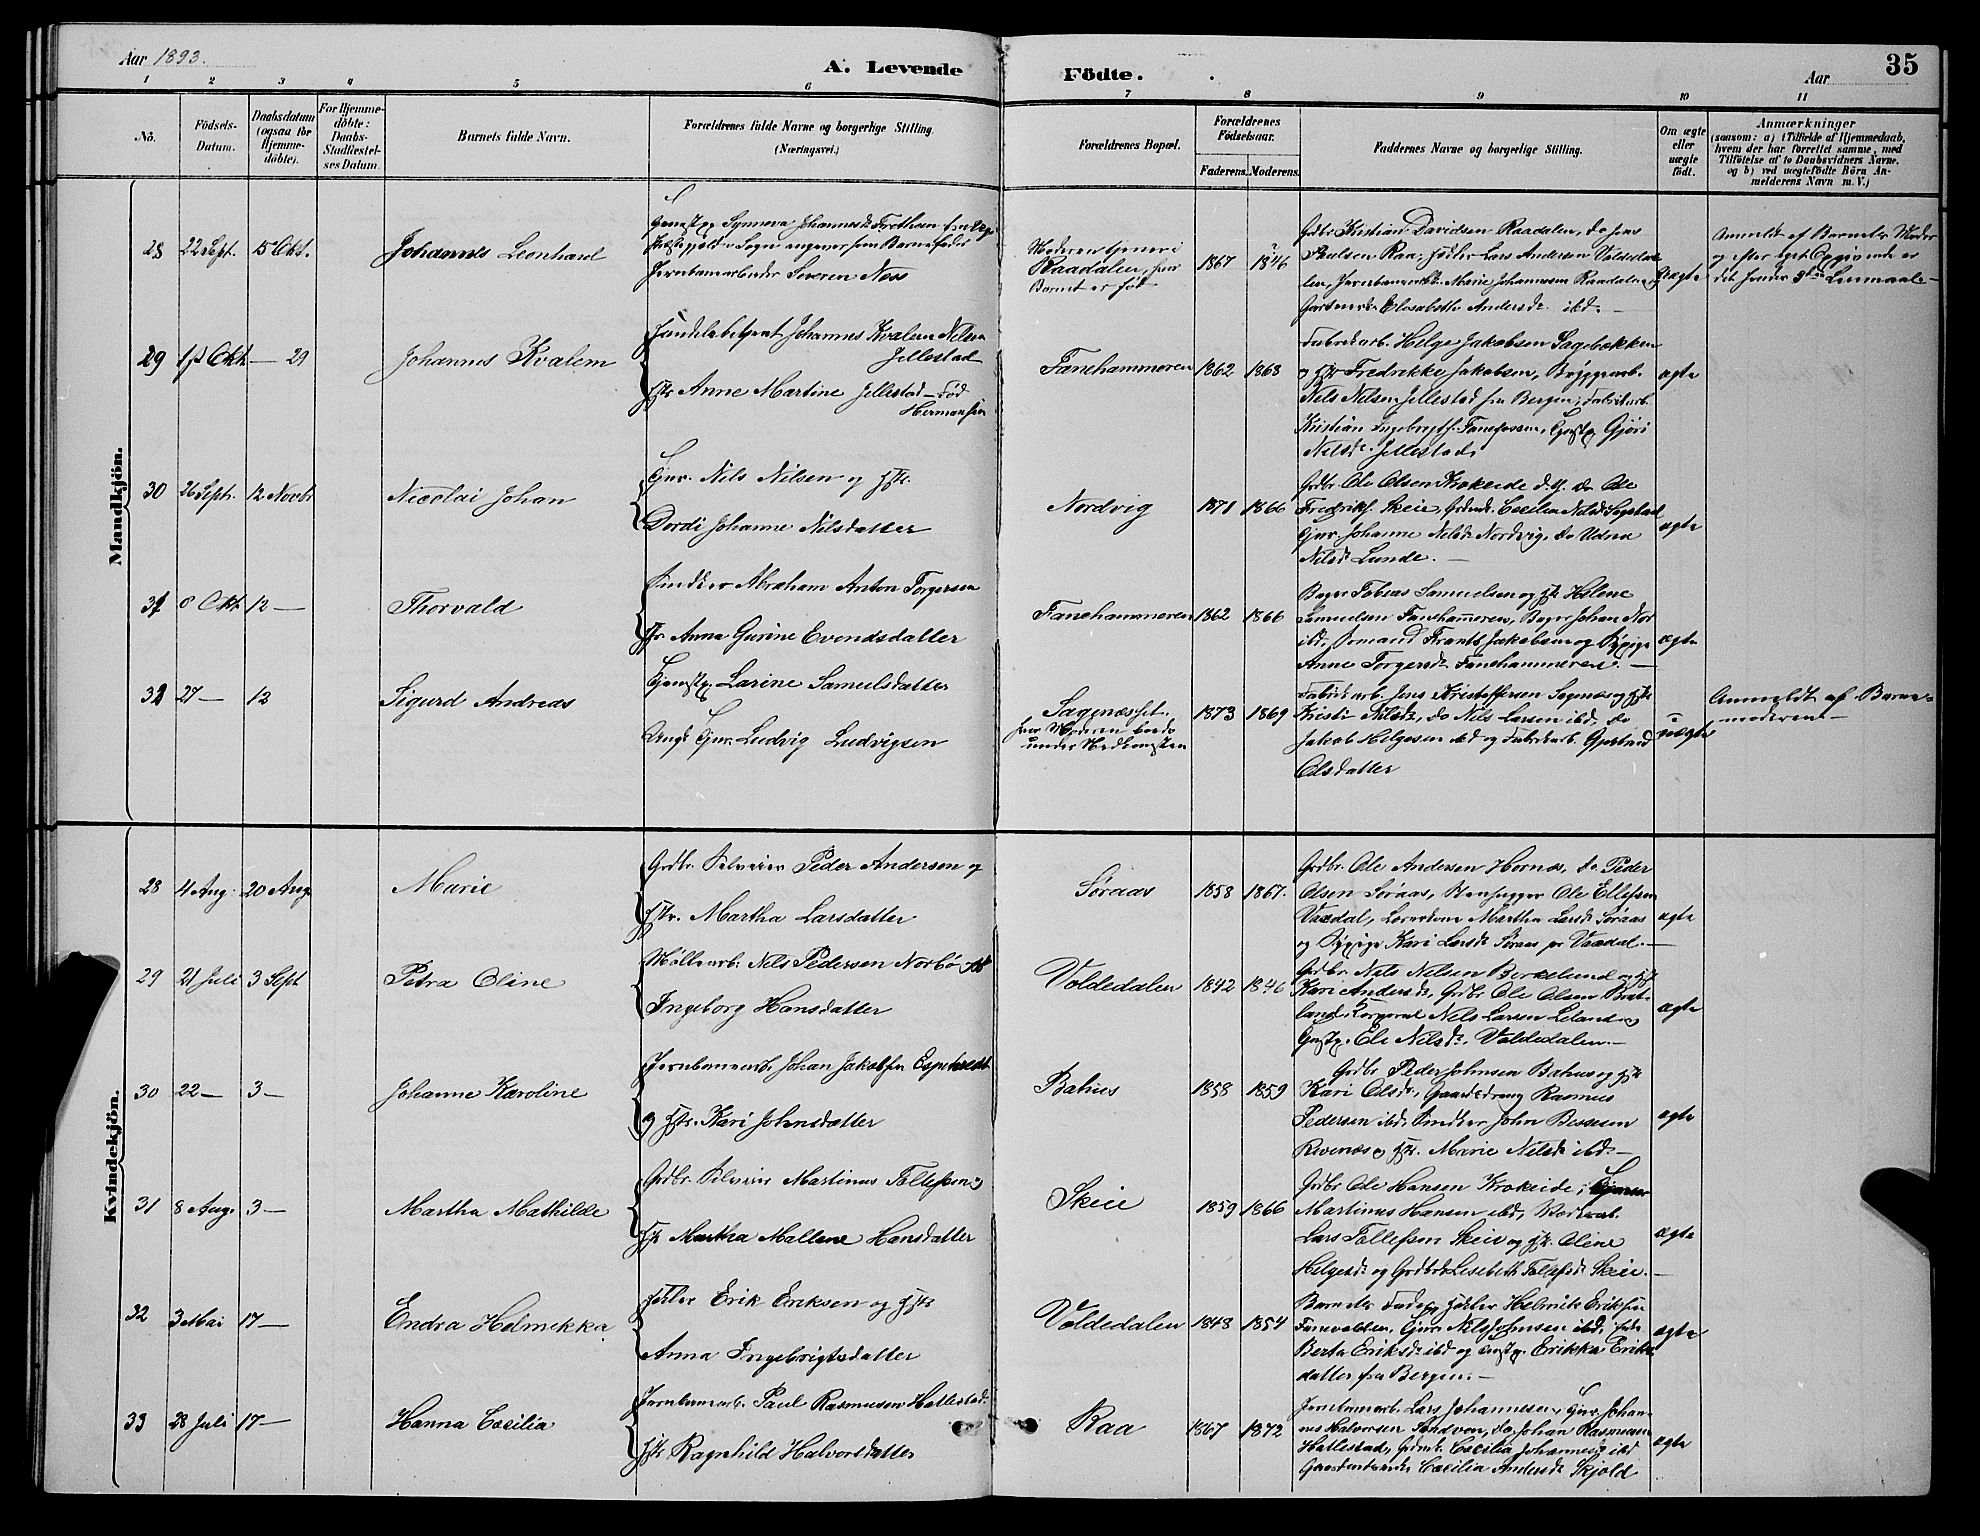 Aar 1893.
A. Levende Fødte.
Aar
35
1 2 3 4 5 6 7 8 9 10 11
No.
Födsels-Datum.
Daabsdatum (ogsaa for Hjemme-döbte).
For Hjemme-döbte: Daabs-Stadfæstel-ses Datum.
Barnets fulde Navn.
Forældrenes fulde Navne og borgerlige Stilling. (Næringsvei.)
Forældrenes Bopæl.
Forældrenes Födselsaar.
Faderens. Moderens.
Faddernes Navne og borgerlige Stilling.
Om ægte eller uægte födt.
Anmærkninger
(saasom: a) i Tilfælde af Hjemmedaab,
hvem der har forrettet samme, med
Tilföielse af to Daabsvidners Navne.
og b) ved uægtefödte Börn An-
melderens Navn m. V.)
Mandkjön.
28 22 Sept. 15 Okt. Johannes Leonhard
Jernbanearbeider Severen Næss
Raadalen, hvor
Barnet er fød
1867 1846
Grbr. Kristian Davidsen Raadalen, do Jens
Paulsen Raa, Føder Lars Andersen
Marie Johannesen Raadalen
Elisabeth Andersdr. ibd.
uægte
Anmeldt af Barnets Moder
og efter eget Opgivende er
det hendes 3die Leiermaal
29 1ste Okt. — 29 Johannes Kvalem
Handelsbetjent Johannes Kvalem Nilsen
Jellestad
Hstr. Anne Martine Jellestad fød
Hermansen
Fanehammeren 1862 1863
Fabrikarb. Helge Jakobsen Sagebakken
og Hstr. Fredrikke Jakobsen, Bryggearb.
Nels Nelsen Jellestad fra Bergen, Fabrikarb.
Kristian
Nilsdr. Jellestad
ægte
30 26 Sept. 12 Novbr. Nicolai Johan
Gjmr. Nils Nilsen og Hstr.
Dordi Johanne Nilsdatter
Nordvig 1871 1866
Grbr. Ole Olsen Krokeide d. Y. do Ole
Fredriks. Skeie, Cecilia Nilsdr.
Gjmr. Johanne Nilsdr. Nordvig, do
Nilsdr. Lunde.
ægte
31 8 Okt. 12 — Thorvald
Snedker Abraham Anton Torgersen
Hstr. Anna Gurine Evendsdatter
Fanehammeren 1862 1866
Bager Tobias Samuelsen og Hstr. Helene
Samuelsen Fanehammeren, Bager Johan
ibd, Frants Jakobsen og Sypige
Anne Torgersdr. Fanehammeren.
ægte
32 27 — 12 Sigurd Andreas
Tjenstp. Larine Samuelsdatter
Ungk. Gjmr. Ludvig Ludvigsen
Sagenæsset.
hvor Moderen
under Nedkomsten
1873 1869
Fabrikarb. Jens Kristoffersen Sagenæs og Hstr.
Kristi Nilsdr., do Nils Larsen ibd, do
Jakob Helgesen ibd og Fabrikarb. Gjertrud
Olsdatter
uægte
Anmeldt af Barne-
moderen
Kvindekjön.
28 4 Aug. 20 Aug. Marie
Grdbr. Selveier Peder Andersen og
Hstr. Martha Larsdatter
Søraas 1858 1867.
Grdbr. Ole Andersen Hornæs, do Peder
Olsen Søraas, Stenhugger Ole Ellefsen
Vaadal, Martha Larsdr. Søraas
og Sypige Kari Larsdr. Søraas pr. Vaadal.
ægte
29 21 Juli 3 Sept. Petra Oline
Møllearb. Nils Pedersen Norbø og
Ingeborg Hansdatter
Voldedalen 1842 1846
Grdbr. Nils Nilsen Birkelund og Hstr.
Kari Andersdr., Grdbr. Ole Olsen Birk-
land, Korporal Nils Larsen
Nilsdr. Voldedalen.
ægte
30 22 — 3 — Johanne Karoline
Jernbanearb. Johan Jakobsen Espehvedt
og Hstr. Kari Johnsdatter
Bahus 1858 1859
Grdbr. Peder Johnsen Bahus og Hstr.
Kari Olsdr., Gaardsdreng Rasmus
Pedersen ibd, Snedker John Bessesen
Revenæs og Hstr. Marie Nilsdr. ibd.
ægte
31 8 Aug. 3 — Martha Mathilde
Grdbr. Selveier Martinus Tollefsen og
Hstr. Martha Mallene Hansdatter
Skeie 1859 1866
Grdbr. Ole Hansen Krokeide,
Martinus Hansen ibd,
Lars Tollefsen Skeie og Hstr. Oline
Helgesdr. og Lisebeth Tollefsdr. Skeie.
ægte
32 3 Mai 17 — Endra Helmikka
Føder Erik Eriksen og Hstr.
Anna Ingebrigtsdatter
Voldedalen 1848 1854
Barnets Fader, Helmik Eriksen
Fanevolden, Gjmr. Nils Johnsen ibd,
Berta Eriksdr. ibd og Erikka Eriks-
datter fra Bergen.
ægte
33 28 Juli 17 — Hanna Cecilia
Jernbanearb. Paul Rasmussen Hatlestad.
Hstr. Ragnhild Halvorsdatter
Raa 1867 1872
Jernbanearb. Lars Johannesen, Gjmr. Johan-
nes Halvorsen Sandven, do Johan Rasmussen
Hatlestad, Cecilia Johannesdr. ibd
Cecilia Andersdr. Skjold
ægte